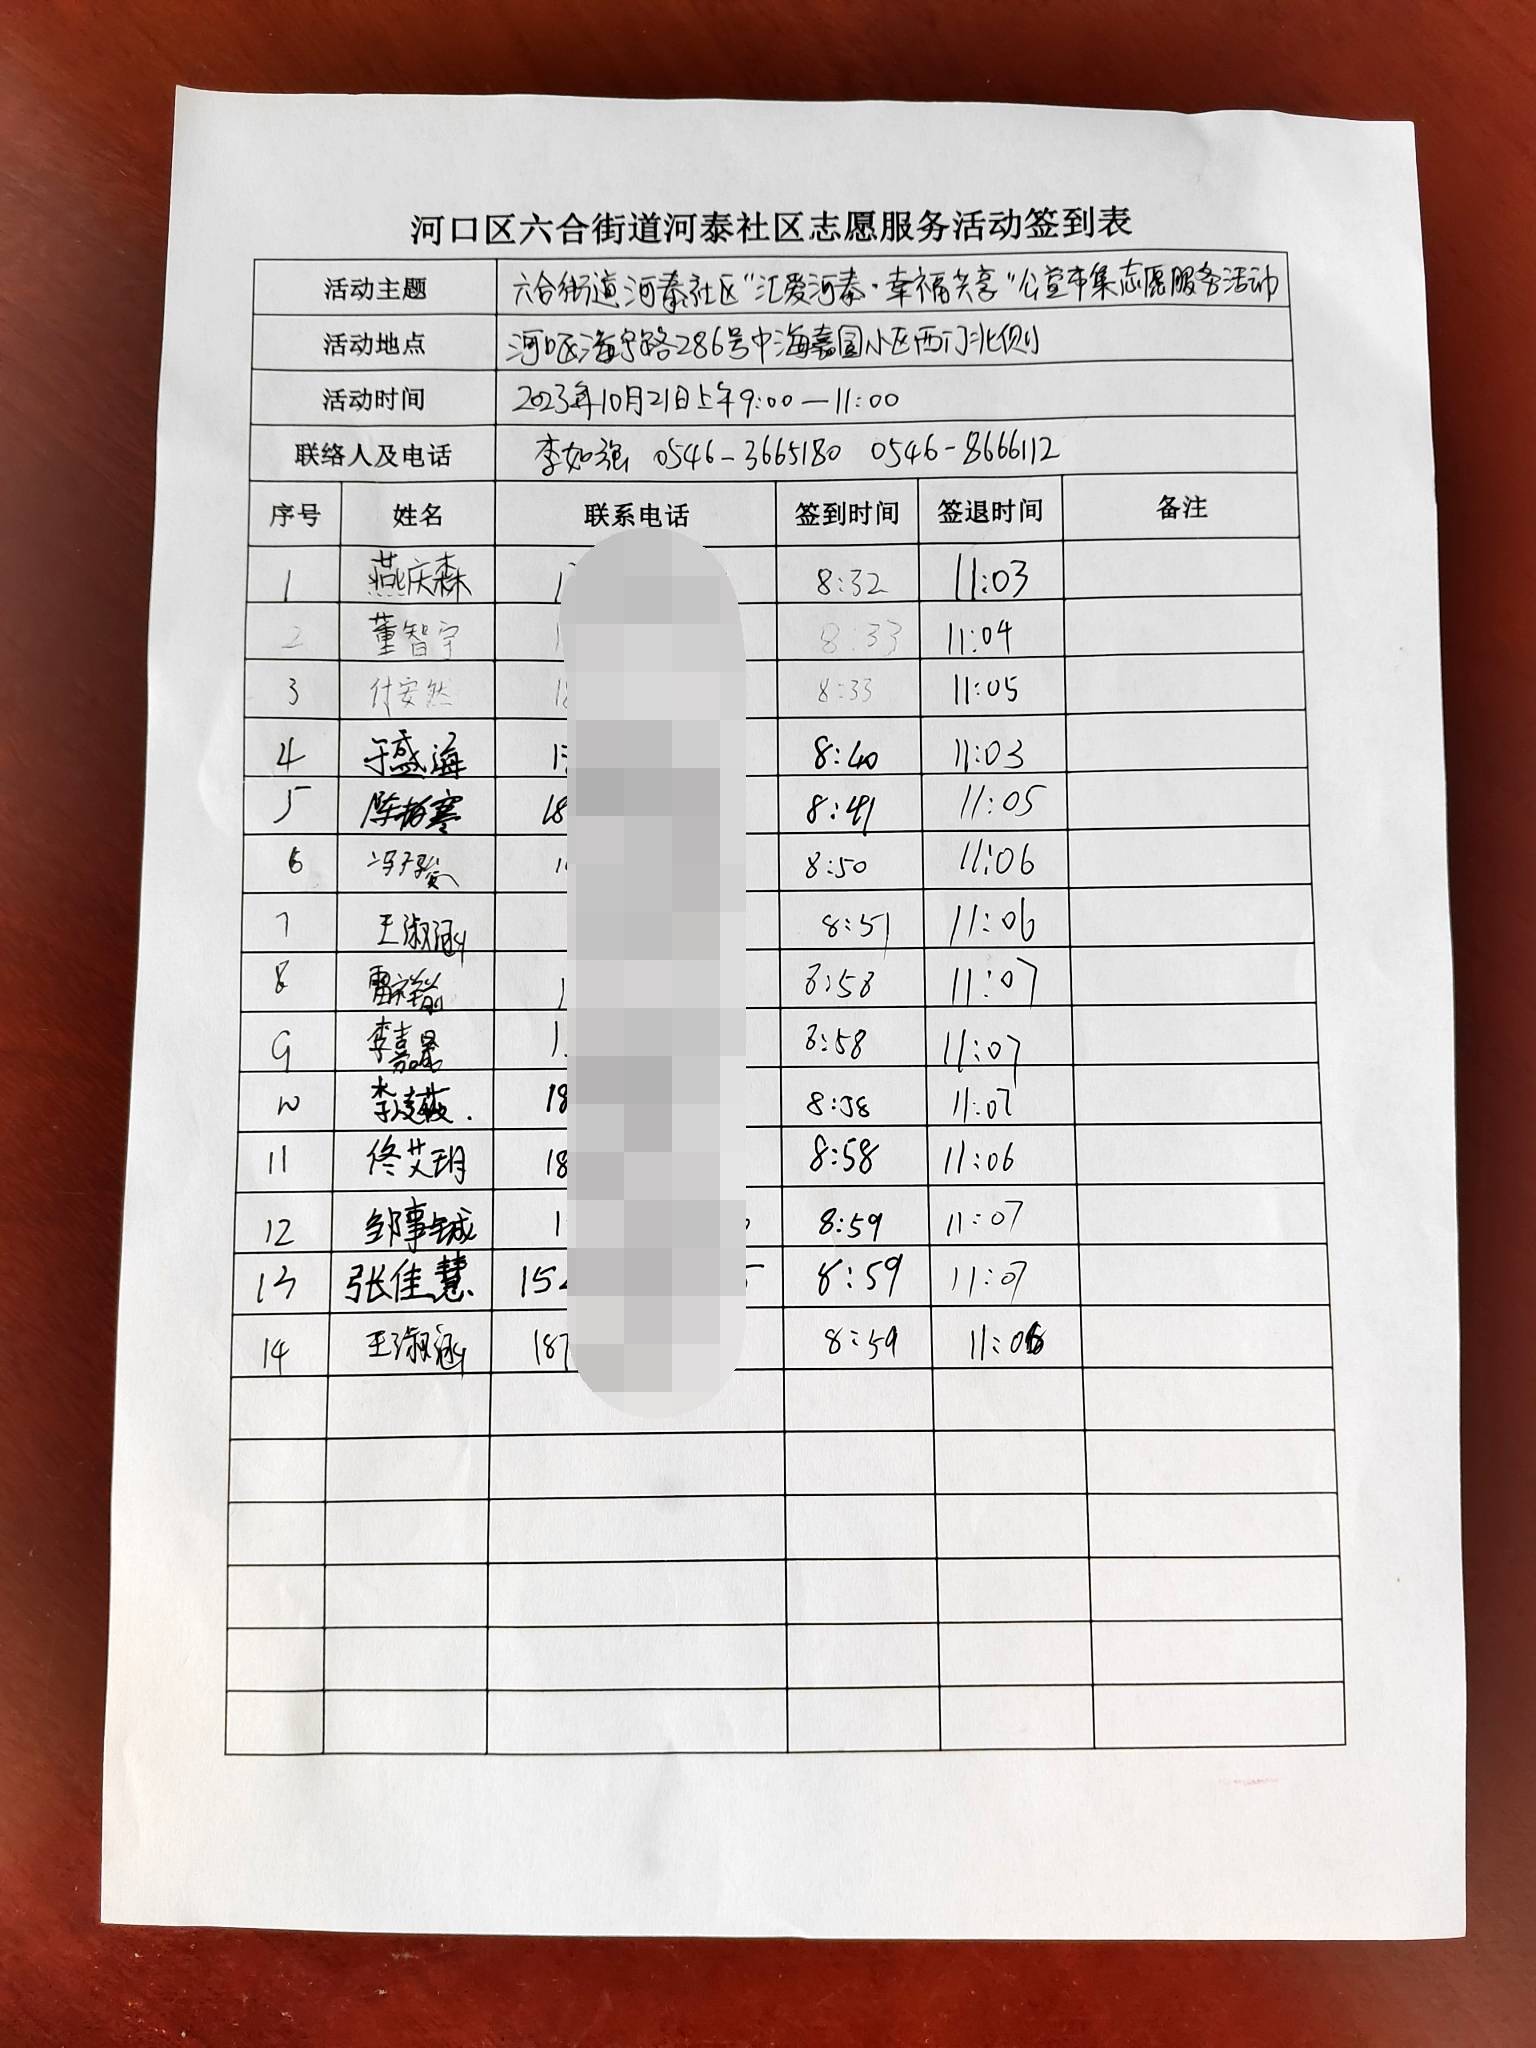 河口区六合街道河泰社区志愿服务活动签到表
活动主题 六合街道河泰社区“汇爱河泰·幸福共享”公堂市集志愿服务活动
活动地点 河口区海宁路286号中海嘉园小区西门北侧
活动时间 2023年10月21日上午9:00—11:00
联络人及电话 李如强 0546-3665180 0546-8666112
序号 姓名 联系电话 签到时间 签退时间 备注
1 燕庆森 1 8:32 11:03
2 董智宇 1 8:33 11:04
3 付安然 18 8:33 11:05
4 于盛海 1 8:40 11:03
5 陈 寒 18 8:41 11:05
6 冯子 1 8:50 11:06
7 王淑涵 8:51 11:06
8 雷祥 1 8:58 11:07
9 李嘉 1 8:58 11:07
10 李凌薇 18 8:58 11:07
11 佟艾玥 18 8:58 11:06
12 邹事诚 1 8:59 11:07
13 张佳慧 15 8:59 11:07
14 王淑涵 187 8:59 11:06